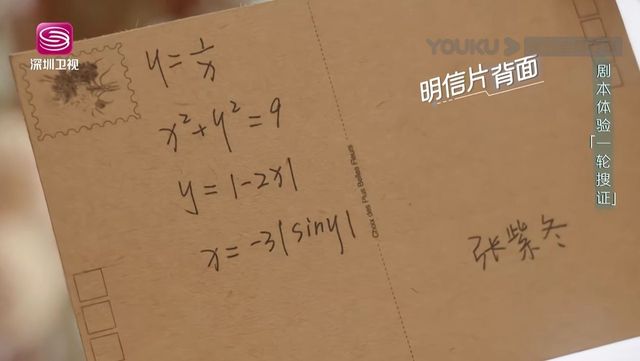 深圳卫视
YOUKU
明信片背面
剧本体验「一轮搜证」
y=1/x
x²+y²=9
y=|-2x|
x=-3|siny|
Choix des Plus Belles Fleurs
张紫冬